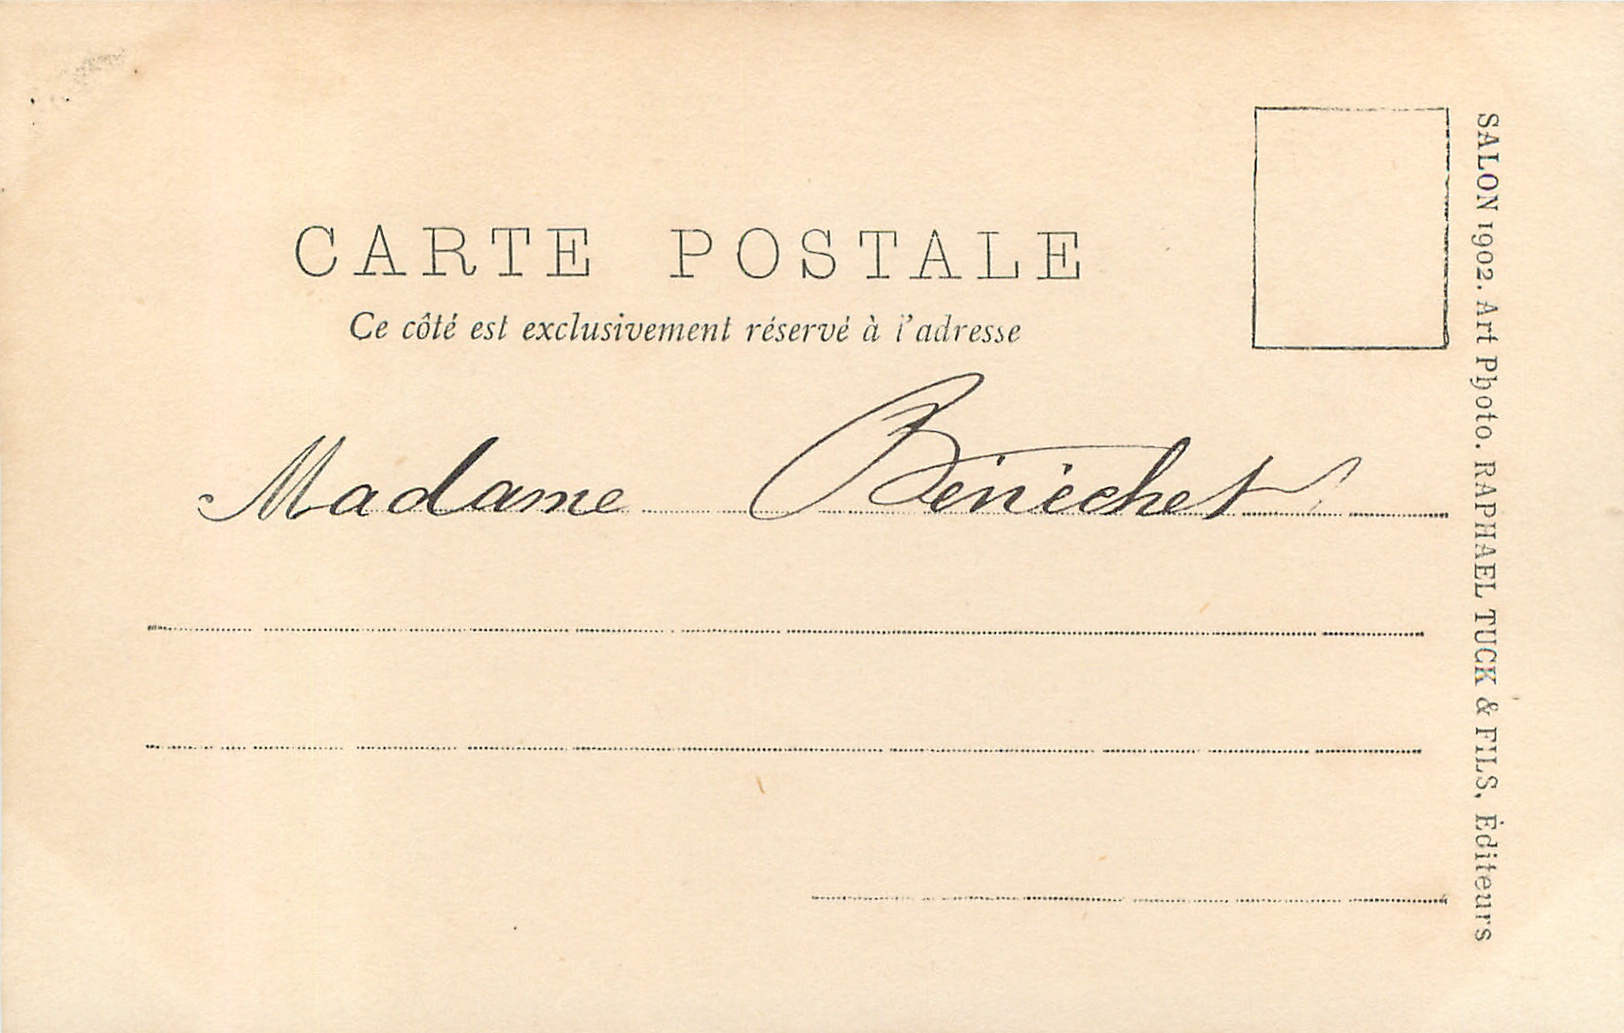 CARTE POSTALE
Ce côté est exclusivement réservé à l'adresse
Madame Bénéchet
SALON 1902. Art Photo. RAPHAEL TUCK & FILS, Éditeurs